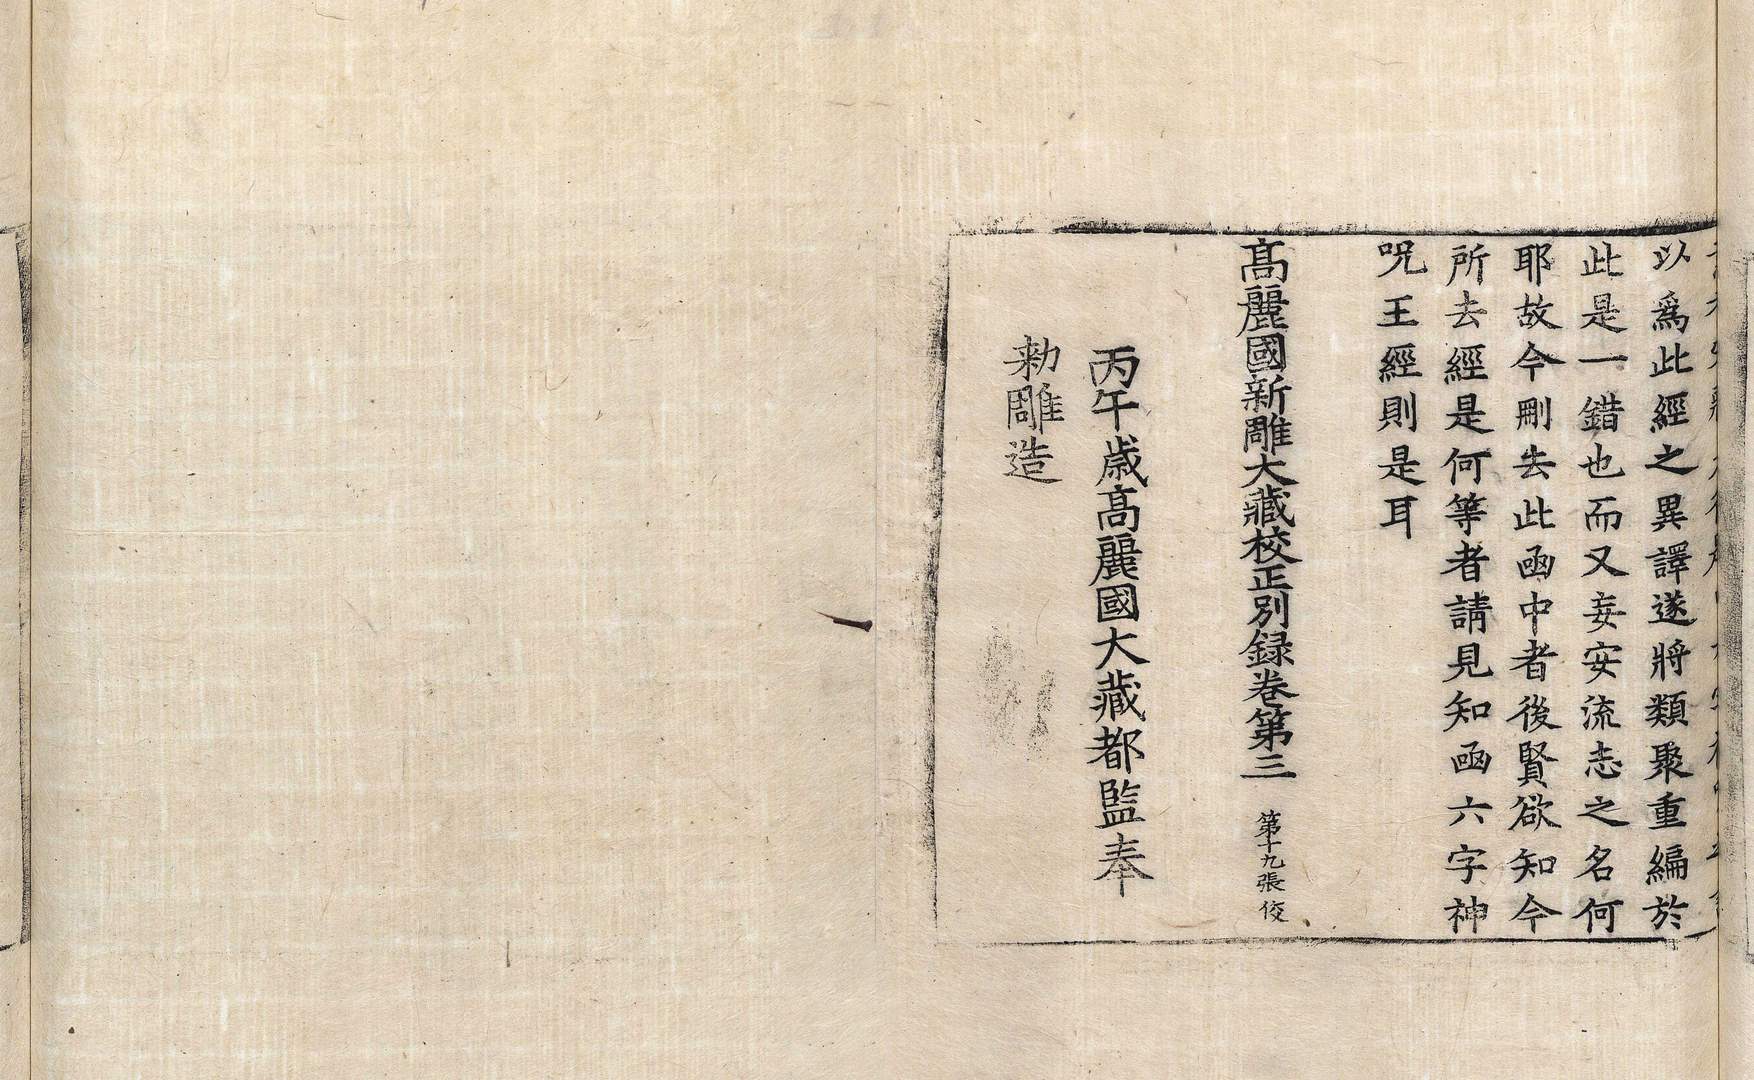 以爲此經之異譯遂將類聚重編於
此是一錯也而又妄安流志之名何
耶故今刪去此函中者後賢欲知今
所去經是何等者請見知函六字神
呪王經則是耳
高麗國新雕大藏校正別録卷第三 第十九張 佼
丙午歲高麗國大藏都監奉
勅雕造